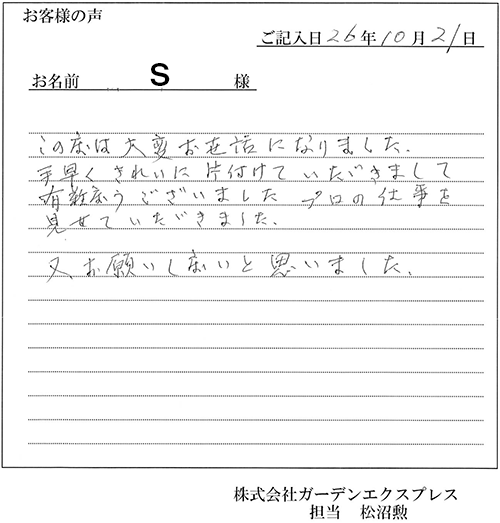 お客様の声
ご記入日 26年10月21日
お名前 S 様
この度は大変お世話になりました.
手早くきれいに片付けていただきまして
有難うございました プロの仕事を
見せていただきました.
又、お願いしたいと思いました.
株式会社ガーデンエクスプレス
担当 松沼勲